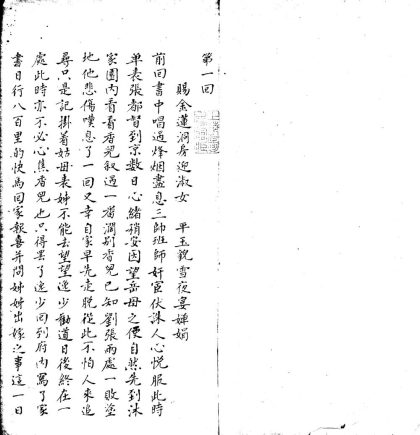 第一回
賜金蓮洞房迎淑女　平玉銳雪夜宴嬋娟
前回書中唱過烽烟盡息三師班師奸宦伏誅人心悅服此時
單表張都督到京數日心緒稍安因望岳母之便自然先到沐
家園內看看香兒叙過一番濶別香兒已知劉張兩處一敗塗
地他悲傷嘆息了一回又幸自家早先走脫從此不怕人來追
尋只是記掛着姑母表姊不能去望望逸少勸道日後終在一
處此時亦不必心焦香兒也只得罷了逸少回到府內寫了家
書日行八百里的快馬回家報喜并問姊姊出嫁之事這一日